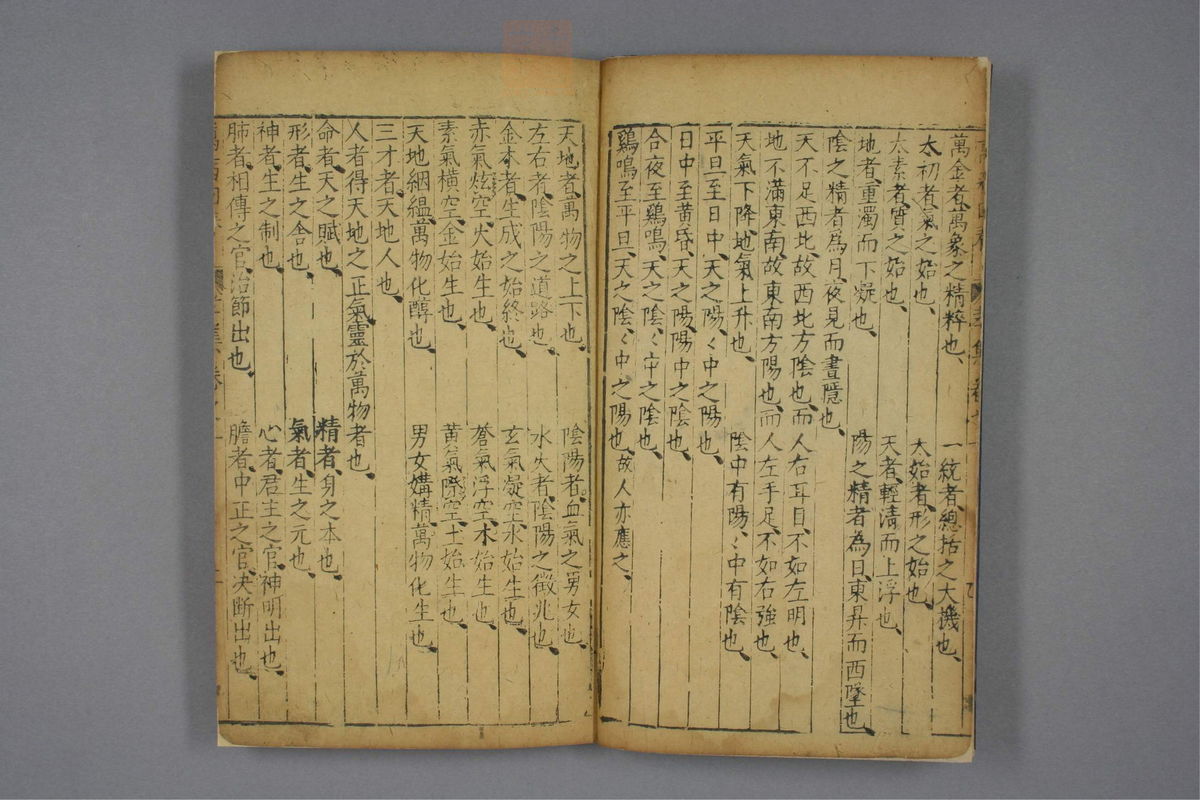 萬金者、萬象之精粹也、 一統者、總括之大機也、
太初者、氣之始也、 太始者、形之始也、
太素者、質之始也、 天者、輕清而上浮也、
地者、重濁而下凝也、 陽之精者為日、東昇而西墜也、
陰之精者為月、夜見而晝隱也、
天不足西北、故西北方陰也、而人右耳目、不如左明也、
地不滿東南、故東南方陽也、而人左手足、不如右強也、
天氣下降、地氣上升也、 陰中有陽、〻中有陰也、
平旦至日中、天之陽、〻中之陽也、
日中至黃昏、天之陽、陽中之陰也、
合夜至鷄鳴、天之陰、〻中之陰也、
鷄鳴至平旦、天之陰、〻中之陽也、故人亦應之、
天地者、萬物之上下也、 陰陽者、血氣之男女也、
左右者、陰陽之道路也、 水火者、陰陽之徵兆也、
金木者、生成之始終也、 玄氣凝空、水始生也、
赤氣炫空、火始生也、 蒼氣浮空、木始生也、
素氣橫空、金始生也、 黃氣際空、土始生也、
天地絪縕、萬物化醇也、 男女媾精、萬物化生也、
三才者、天地人也、
人者、得天地之正氣、靈於萬物者也、
命者、天之賦也、 精者、身之本也、
形者、生之舍也、 氣者、生之元也、
神者、生之制也、 心者、君主之官、神明出也、
肺者、相傳之官、治節出也、 膽者、中正之官、决断出也、